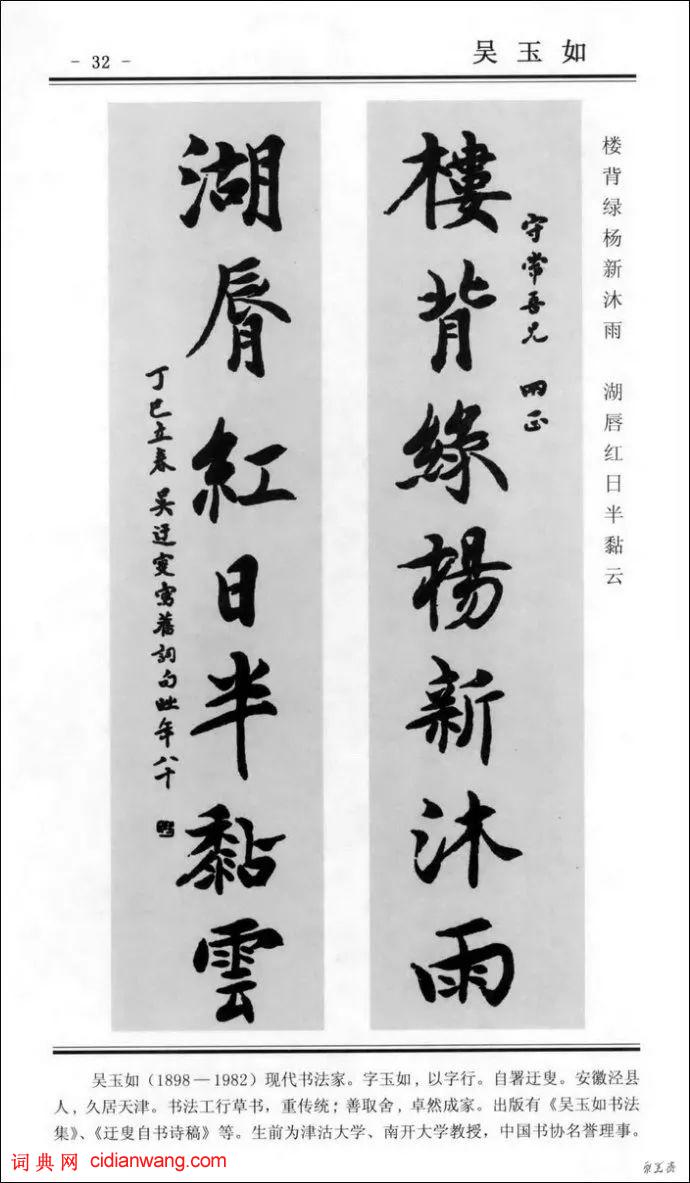 - 32 -
吴玉如
樓背綠楊新沐雨
守常吾兄 两正
湖脣紅日半黏雲
丁巳立春 吴迂叟寫舊詞句時年八十
楼背绿杨新沐雨 湖唇红日半黏云
吴玉如（1898—1982）现代书法家。字玉如，以字行。自署迂叟。安徽泾县
人，久居天津。书法工行草书，重传统；善取舍，卓然成家。出版有《吴玉如书法
集》、《迂叟自书诗稿》等。生前为津沽大学、南开大学教授，中国书协名誉理事。
词典网 cidianwang.com